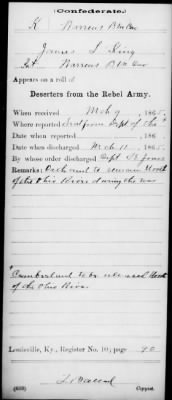 (Confederate.)
K
James S King
Appears on a roll of
Deserters from the Rebel Army.
When received Mch 9, 1865.
Where reported Sent from Dept of the
Date when reported , 186 .
Date when discharged Mch 11, 1865.
By whose order discharged
Remarks: Oath and to remain North
of the Ohio River during the war
Cumberland to be released North
of the Ohio River
Louisville, Ky., Register No. 10; page 90
Copyist.